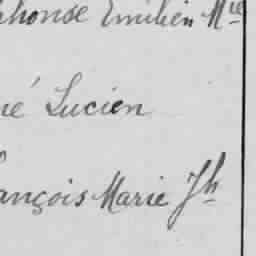 phonse Emilien Mie
né Lucien
ançois Marie Jh